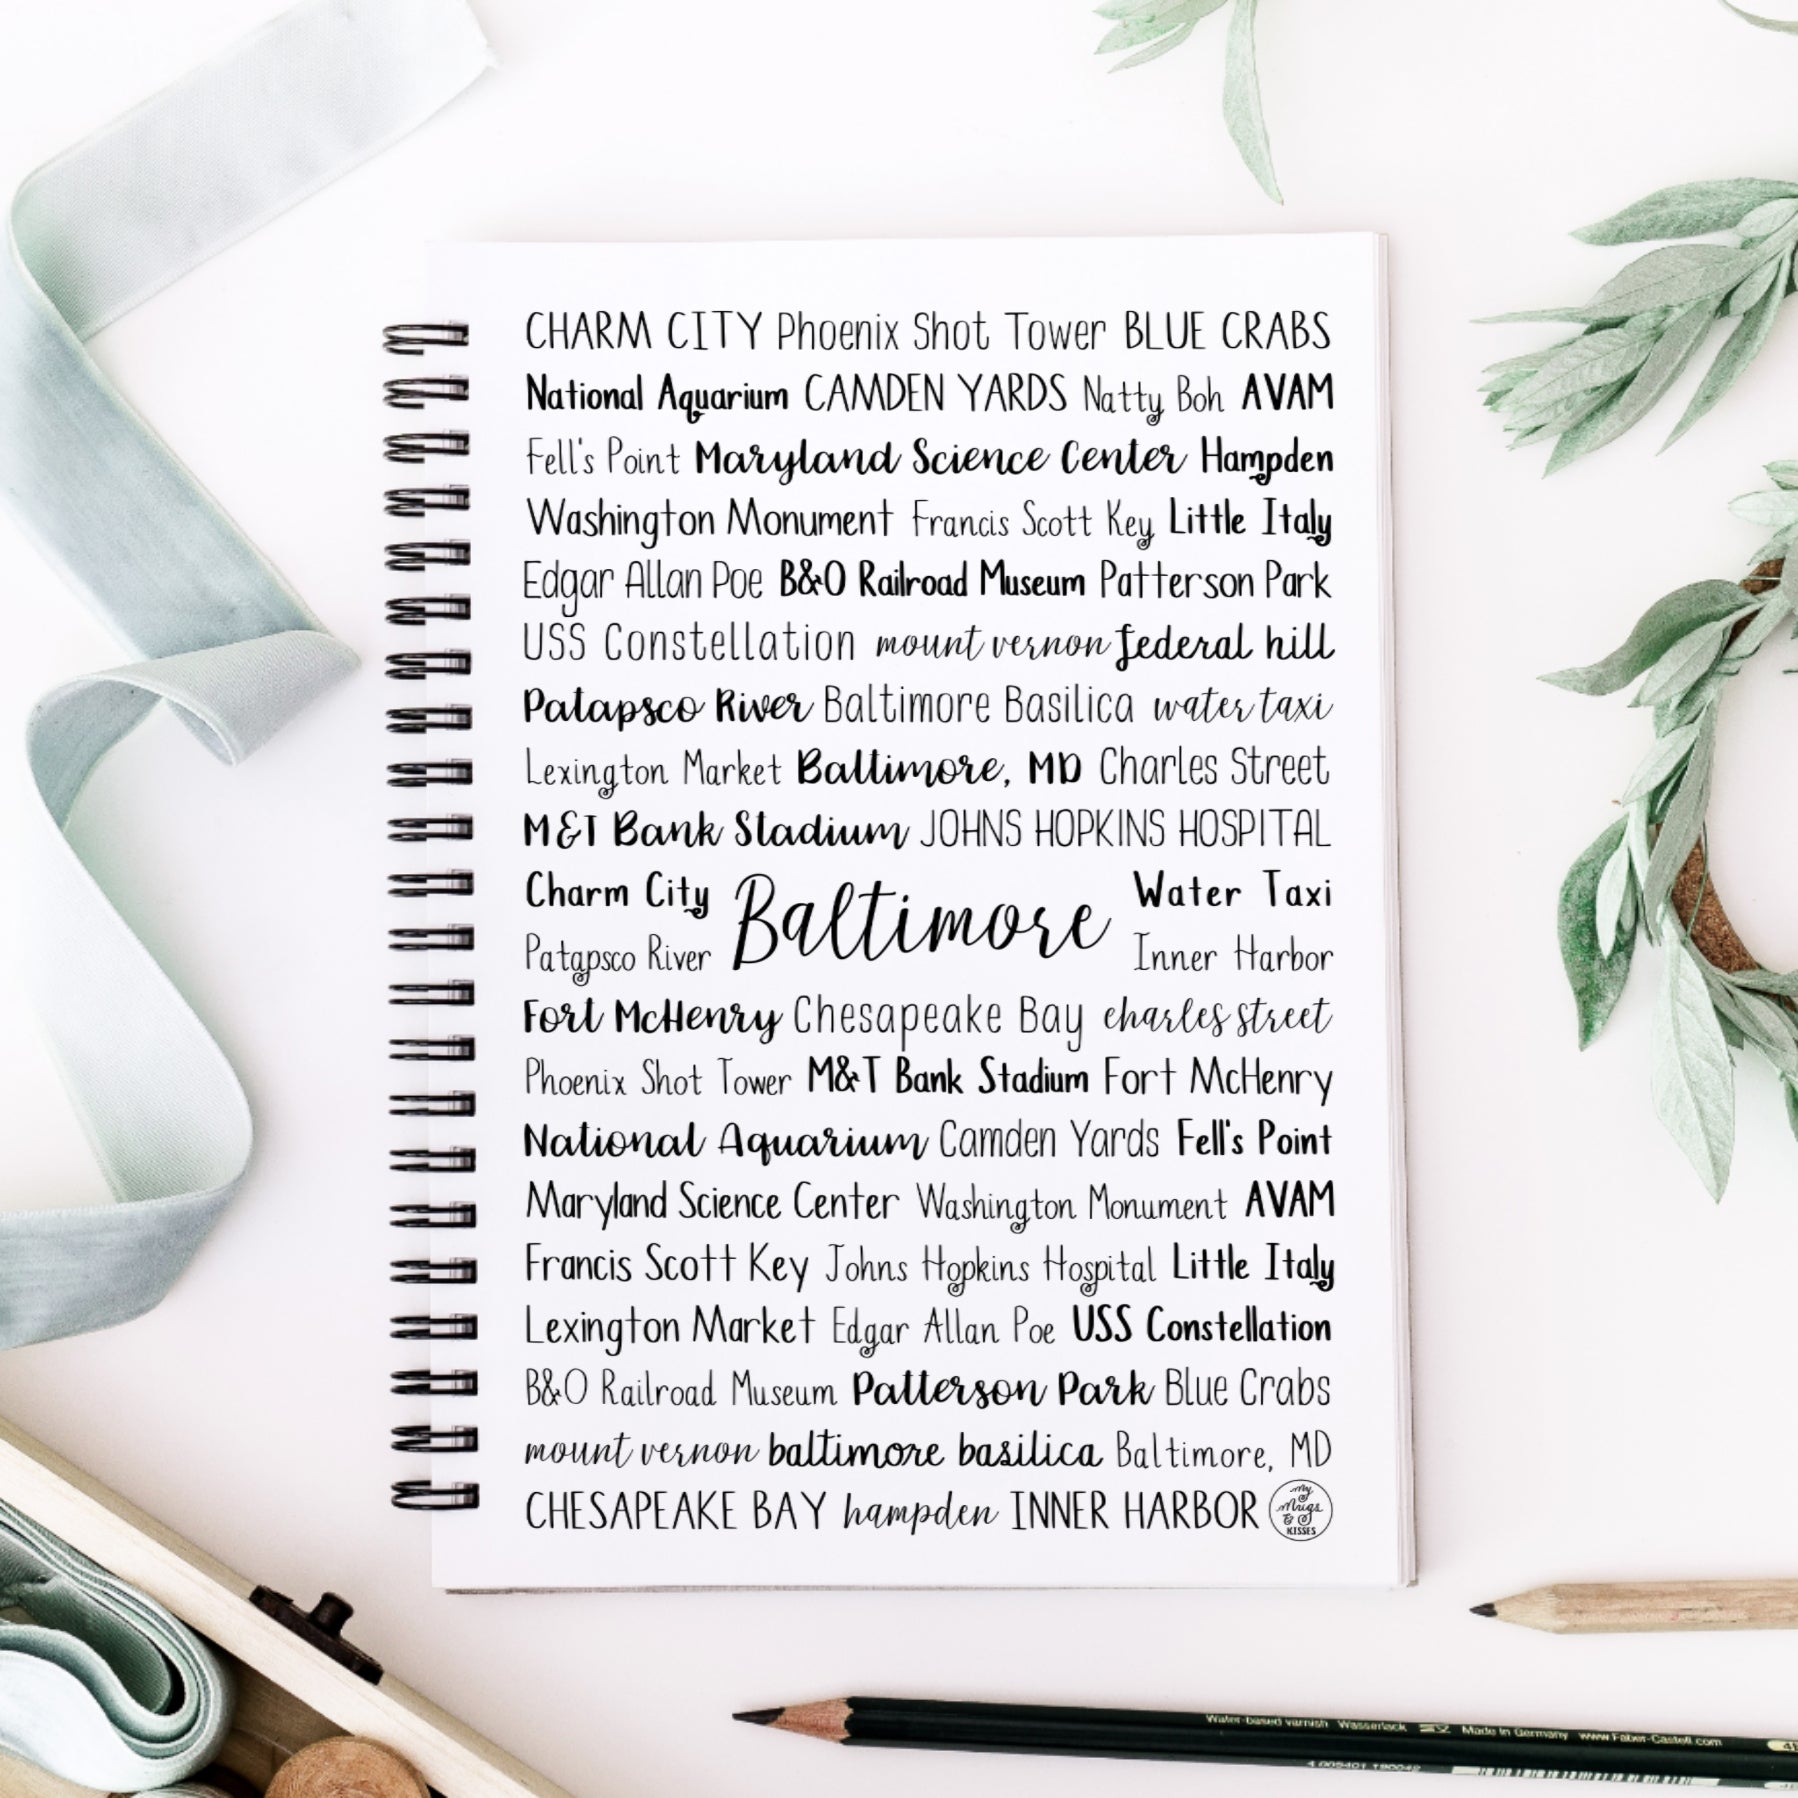 CHARM CITY Phoenix Shot Tower BLUE CRABS
National Aquarium CAMDEN YARDS Natty Boh AVAM
Fell's Point Maryland Science Center Hampden
Washington Monument Francis Scott Key Little Italy
Edgar Allan Poe B&O Railroad Museum Patterson Park
USS Constellation mount vernon federal hill
Patapsco River Baltimore Basilica water taxi
Lexington Market Baltimore, MD Charles Street
M&T Bank Stadium JOHNS HOPKINS HOSPITAL
Charm City Baltimore Water Taxi
Patapsco River Inner Harbor
Fort McHenry Chesapeake Bay charles street
Phoenix Shot Tower M&T Bank Stadium Fort McHenry
National Aquarium Camden Yards Fell's Point
Maryland Science Center Washington Monument AVAM
Francis Scott Key Johns Hopkins Hospital Little Italy
Lexington Market Edgar Allan Poe USS Constellation
B&O Railroad Museum Patterson Park Blue Crabs
mount vernon baltimore basilica Baltimore, MD
CHESAPEAKE BAY hampden INNER HARBOR
My
Mugs
&
KISSES
Water-based varnish Wasserlack Made in Germany www.Faber-Castell.com